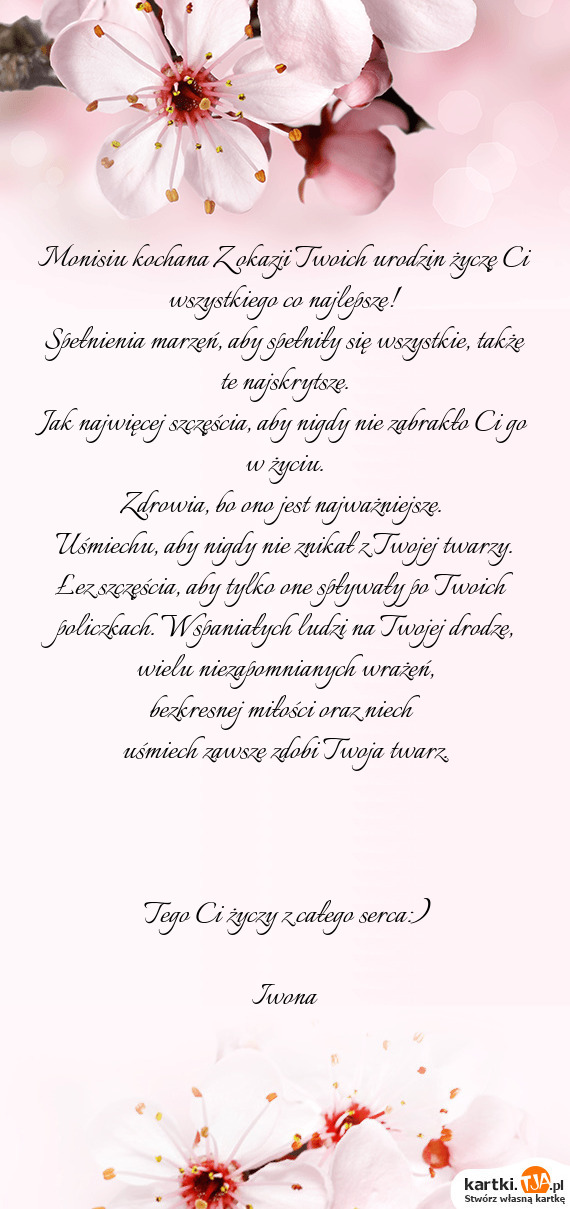 Monisiu kochana Z okazji Twoich urodzin życzę Ci
wszystkiego co najlepsze!
Spełnienia marzeń, aby spełniły się wszystkie, także
te najskrytsze.
Jak najwięcej szczęścia, aby nigdy nie zabrakło Ci go
w życiu.
Zdrowia, bo ono jest najważniejsze.
Uśmiechu, aby nigdy nie znikał z Twojej twarzy.
Łez szczęścia, aby tylko one spływały po Twoich
policzkach. Wspaniałych ludzi na Twojej drodze,
wielu niezapomnianych wrażeń,
bezkresnej miłości oraz niech
uśmiech zawsze zdobi Twoja twarz.
Tego Ci życzy z całego serca:)
Iwona
kartki.TJA.pl
Stwórz własną kartkę